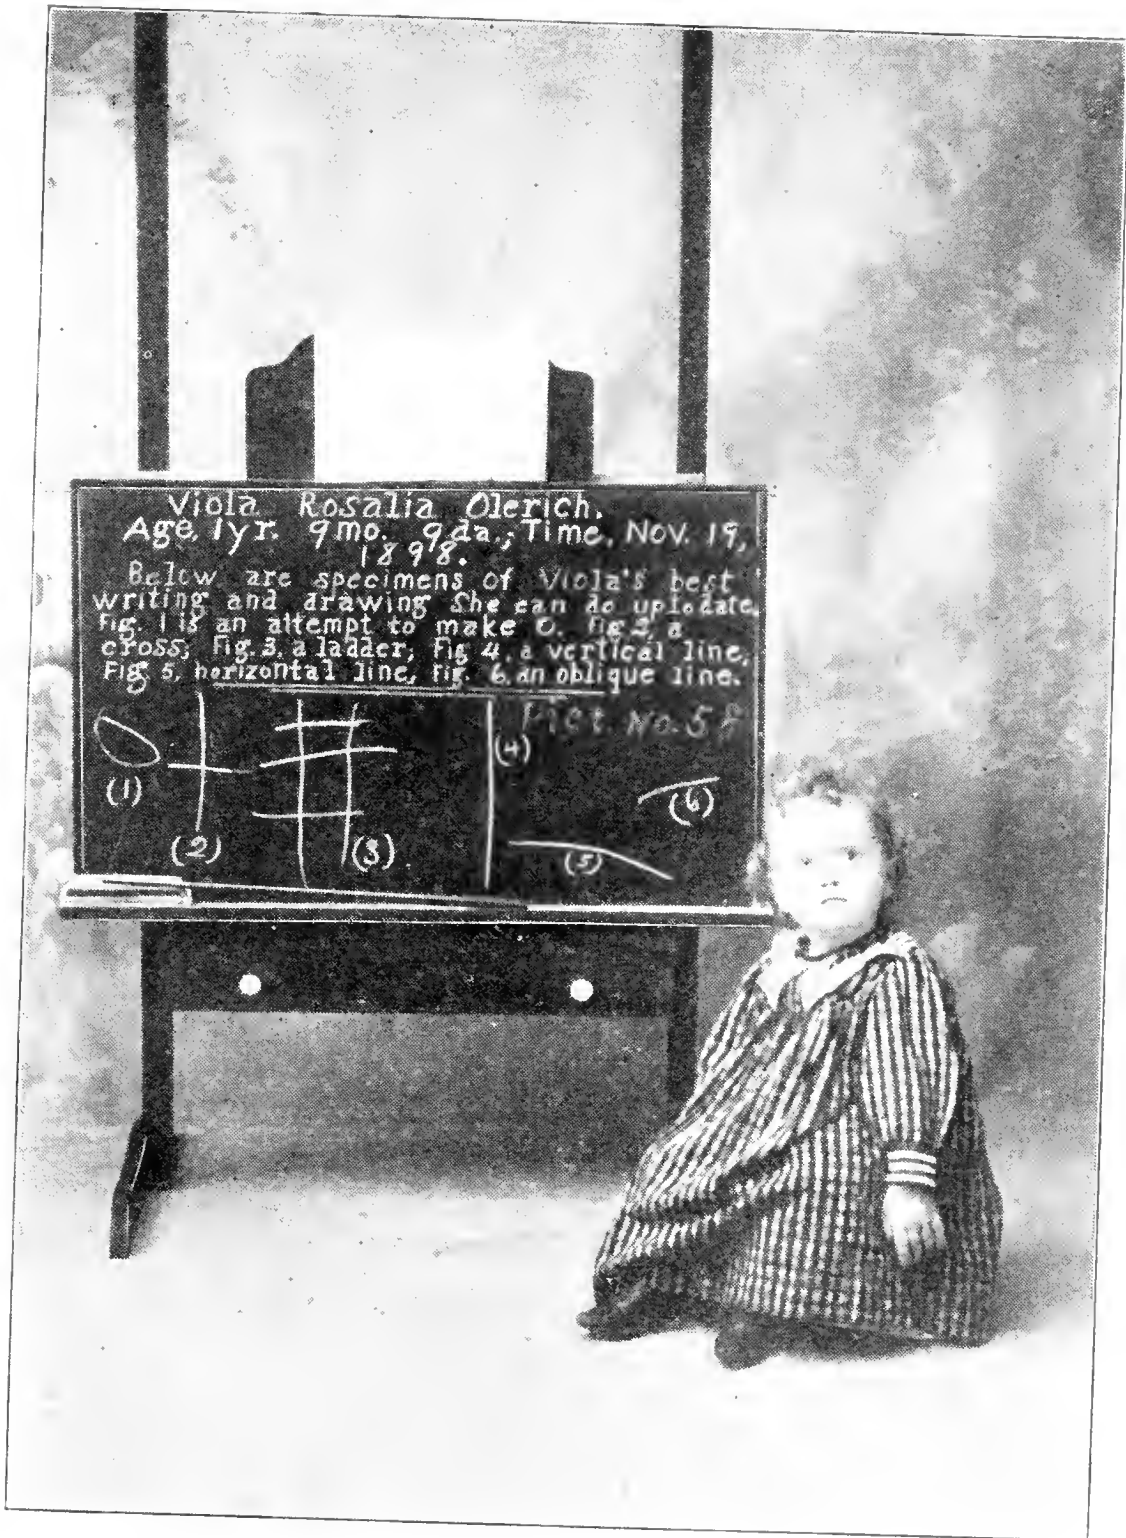 Viola Rosalia Olerich.
Age, 1yr. 9mo. 9da.; Time, Nov. 19,
1898.
Below are specimens of Viola's best
writing and drawing She can do up to date.
Fig. 1 is an attempt to make O. Fig 2, a
cross; Fig. 3, a ladder; Fig 4, a vertical line,
Fig 5, horizontal line, Fig. 6, an oblique line.
Pict. No. 58
(1)
(2)
(3)
(4)
(5)
(6)